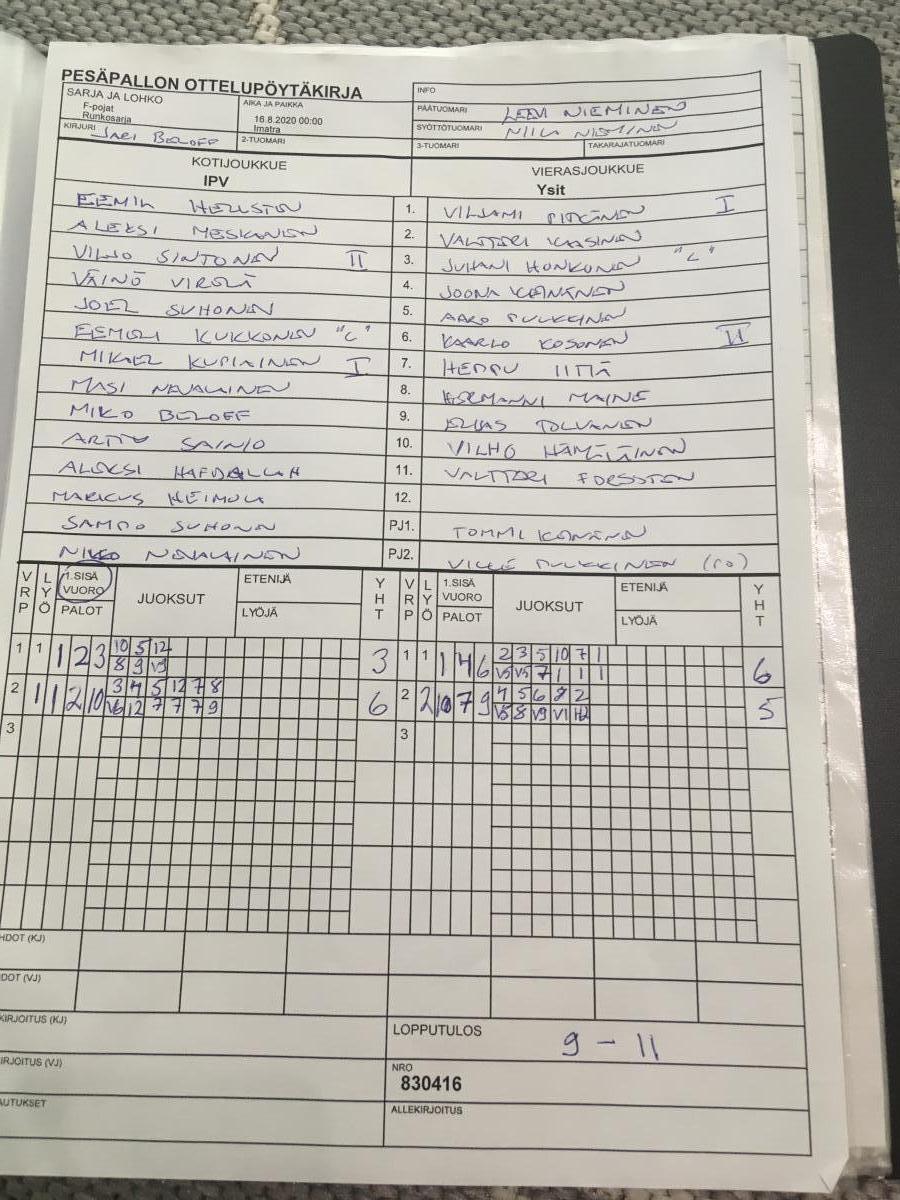 PESÄPALLON OTTELUPÖYTÄKIRJA
SARJA JA LOHKO
F-pojat
Runkosarja
AIKA JA PAIKKA
16.8.2020 00:00
Imatra
INFO
PÄÄTUOMARI LEEVI NIEMINEN
SYÖTTÖTUOMARI NIILA NIEMINEN
KIRJURI JARI BELOFF
2-TUOMARI
3-TUOMARI
TAKARAJATUOMARI
KOTIJOUKKUE
IPV
VIERASJOUKKUE
Ysit
EEMIL HELLSTEN 1. VILJAMI PITKÄNEN I
ALEKSI MESKANEN 2. VALTTERI KAASINEN
VILJO SINTONEN II 3. JUHANI HONKONEN "C"
VÄINÖ VIROLA 4. JOONA KAINANEN
JOEL SUHONEN 5. AARO PULKKINEN
EEMELI KUKKONEN "C" 6. KAARLO KOSONEN II
MIKAEL KUPIAINEN I 7. HEMPU IITIÄ
MASI NEVALAINEN 8. HERMANNI MAINE
MIKO BELOFF 9. ELIAS TOLVANEN
ARTTU SAINIO 10. VILHO HÄMÄLÄINEN
ALEKSI HAFDALLAH 11. VALTTERI FORSSTEN
MARKUS HEIMOLA 12.
SAMPO SUHONEN PJ1. TOMMI
NIKO NEVALAINEN PJ2. VILLE PULKKINEN (PO)
VRP LYÖ 1.SISÄ VUORO PALOT JUOKSUT ETENIJÄ LYÖJÄ YHT VRP LYÖ 1.SISÄ VUORO PALOT JUOKSUT ETENIJÄ LYÖJÄ YHT
1 1 1 2 3 10 5 12 3 1 1 1 4 6 2 3 5 10 7 1 6
8 9 V9 V5 V5 7 1 1 1
2 1 1 2 10 3 4 5 12 7 8 6 2 2 10 7 9 4 5 6 8 2 5
V6 12 7 7 7 9 V5 8 V9 V1
3 3
HDOT (KJ)
DOT (VJ)
KIRJOITUS (KJ)
LOPPUTULOS 9 - 11
IRJOITUS (VJ)
NRO
830416
AUTUKSET
ALLEKIRJOITUS